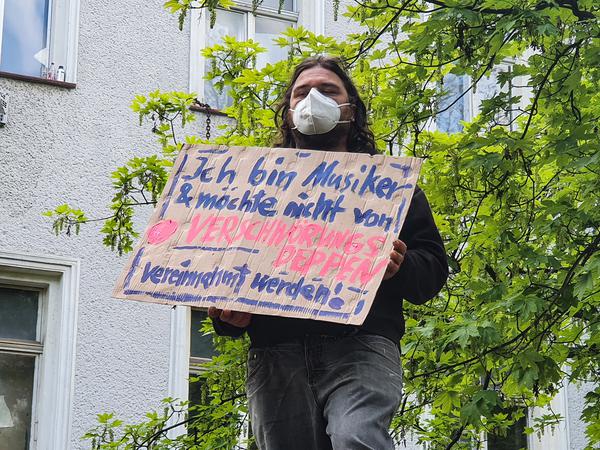 Ich bin Musiker
& möchte nicht von
VERSCHWÖRUNGS
DEPPEN
vereinnahmt werden!